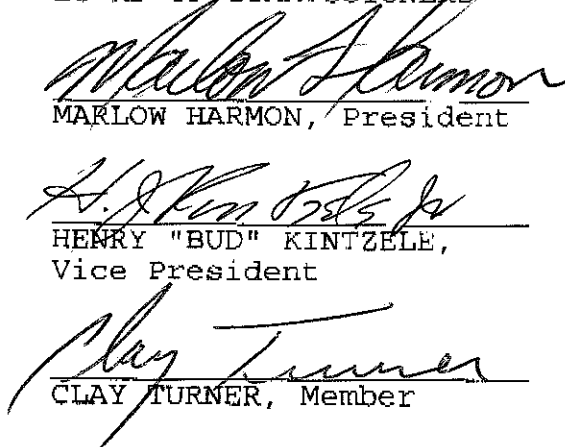 Marlow F Harmon
MARLOW HARMON, President
H. J Kintzele Jr
HENRY "BUD" KINTZELE,
Vice President
Clay Turner
CLAY TURNER, Member